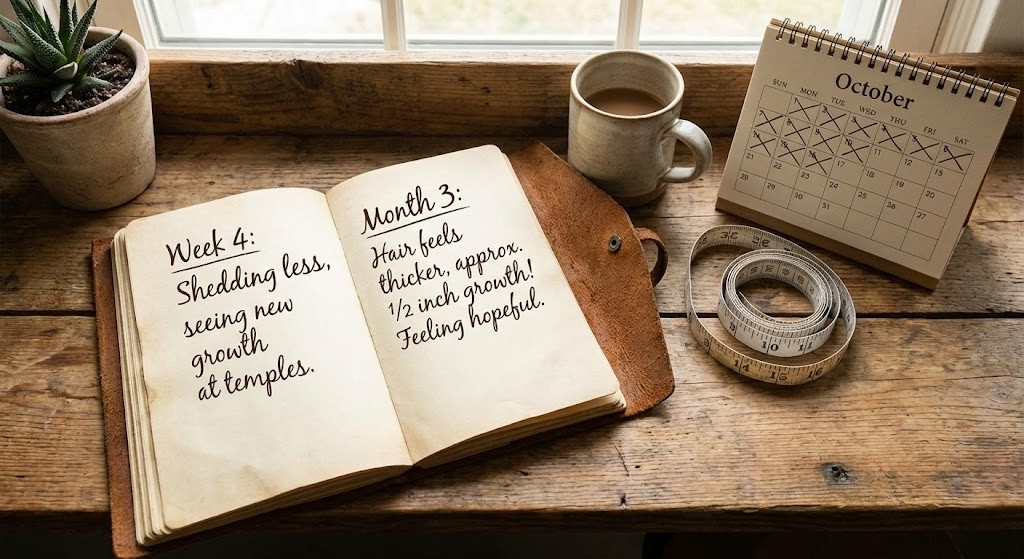 Week 4:
Shedding less,
seeing new
growth
at temples.
Month 3:
Hair feels
thicker, approx.
1/2 inch growth!
Feeling hopeful.
October
SUN MON TUE WED THU FRI SAT
28 29 30 31
9 10
14